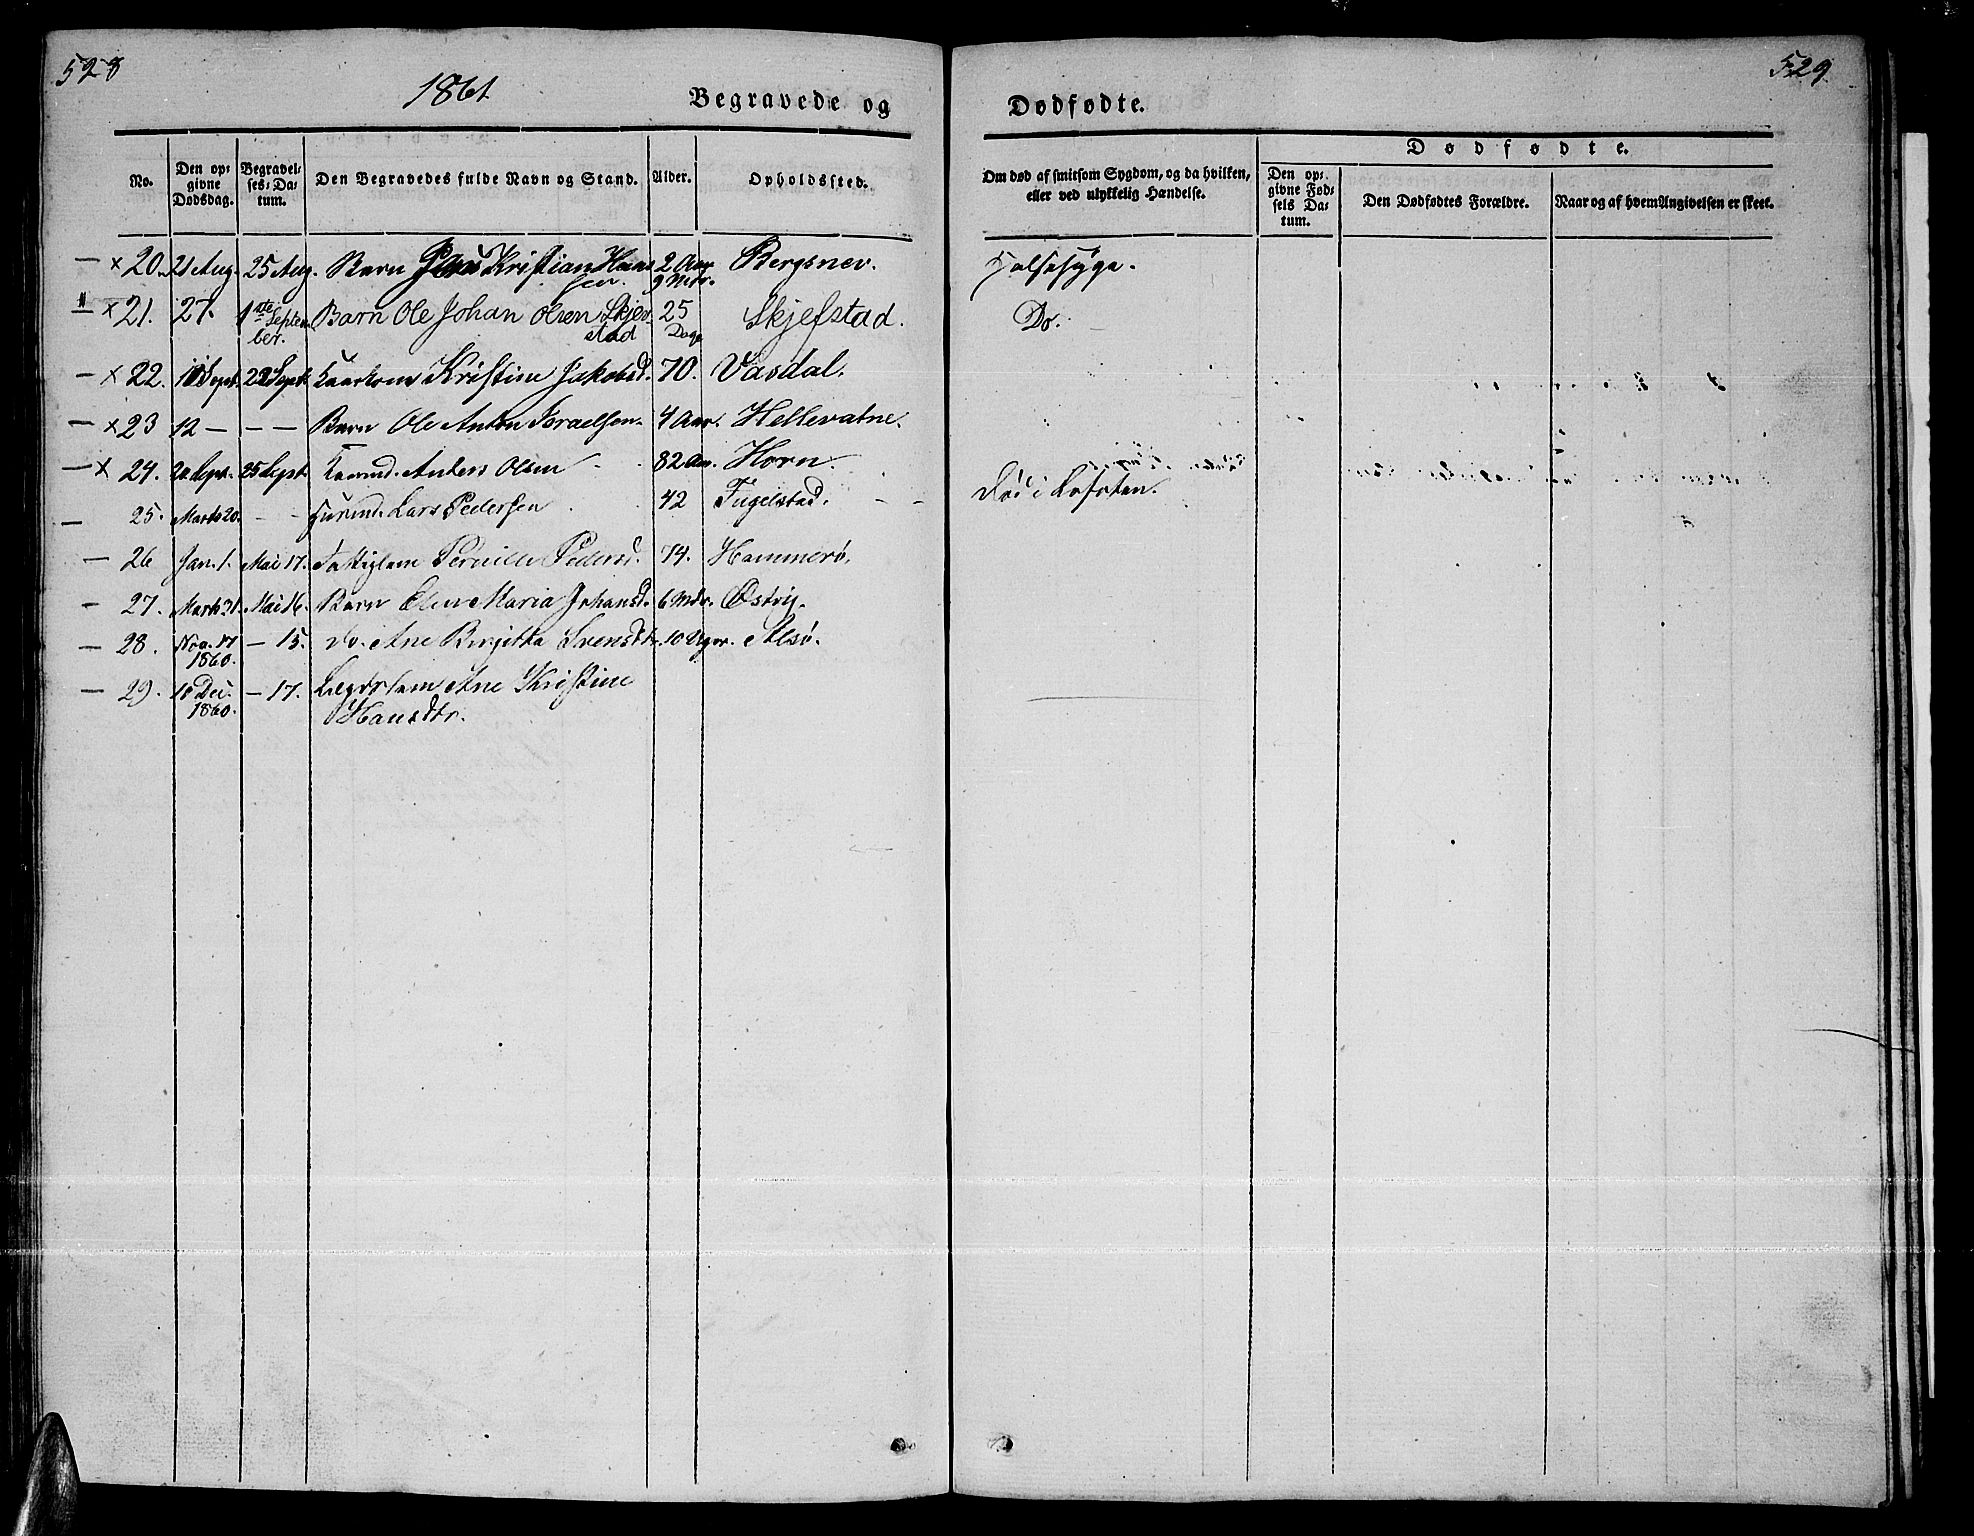 528
1861
Begravede og
Dødfødte.
529
No.
Den op-
givne
Dødsdag.
Begravel-
ses-Da-
tum.
Den Begravedes fulde Navn og Stand.
Alder.
Opholdssted.
Om død af smitsom Sygdom, og da hvilken,
eller ved ulykkelig Hændelse.
Dødfødte.
Den op-
givne Fød-
sels Da-
tum.
Den Dødfødtes Forældre.
Naar og af hvem Angivelsen er skeet.
— x 20. 21 Aug. 25 Aug. Barn Kristian Hans 2 Aar Bergsnev. Halssyge.
sen. 9 Mdr.
x 21. 27. 1ste Septem Barn Ole Johan Olsen Skjev- 25 Skjefstad. Do.
ber. stad Dage
— x 22. Sept. 22 Sept. Kristine Jakobsd. 70. Vasdal.
— x 23 12 — — — Barn Ole Anton Israelsen. 4 Aar. Hellevatne.
— x 24. 20 Sept. 25 Sept. Anders Olsen 82 Aar. Horn.
— 25. Marts 20. - - Husmd. Lars Pedersen 42 Fugelstad. Død i Lofoten.
— 26 Jan. 1. Mai 17. Fattiglem Pernille Pedersd. 74. Hammerø.
— 27. Marts 31. Mai 16. Barn Elen Maria Johansd. 6 Mdr. Østvig.
— 28. Nov. 17 — 15. do. Ane Birgitta Svensdtr. 10 Uger. Alsø.
1860.
— 29. 18 Dec. — 17. Lægdslem Ane Kristine
1860. Hansdtr.